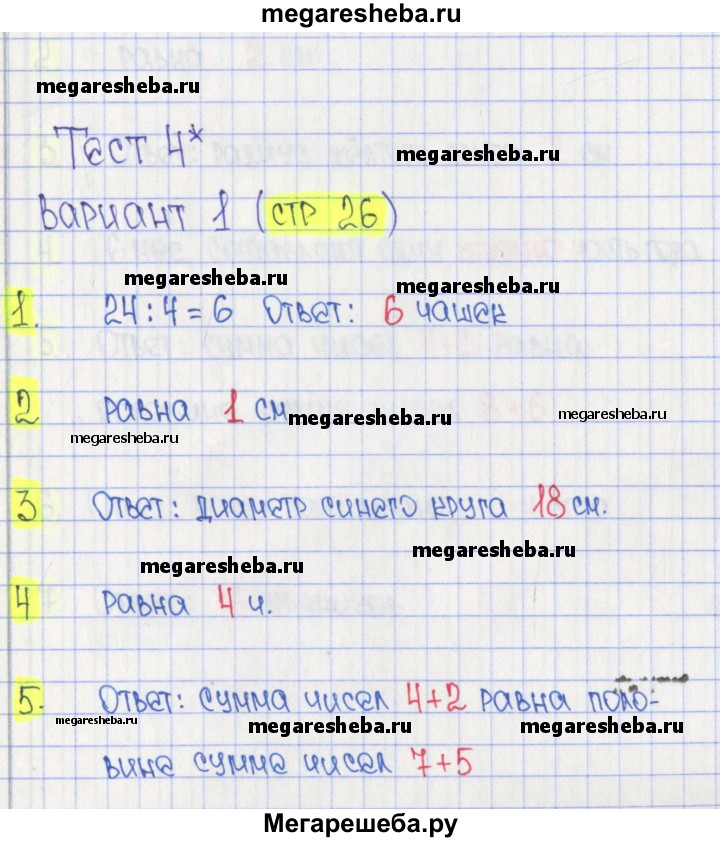 megaresheba.ru
megaresheba.ru
Тест 4*
megaresheba.ru
вариант 1 (стр 26)
megaresheba.ru
megaresheba.ru
1. 24 : 4 = 6 Ответ: 6 чашек
2 равна 1 см
megaresheba.ru
megaresheba.ru
megaresheba.ru
3 Ответ: диаметр синего круга 18 см.
megaresheba.ru
megaresheba.ru
4 равна 4 ч.
5. Ответ: сумма чисел 4+2 равна поло-
megaresheba.ru
megaresheba.ru
megaresheba.ru
вине сумме чисел 7+5
Мегарешеба.ру